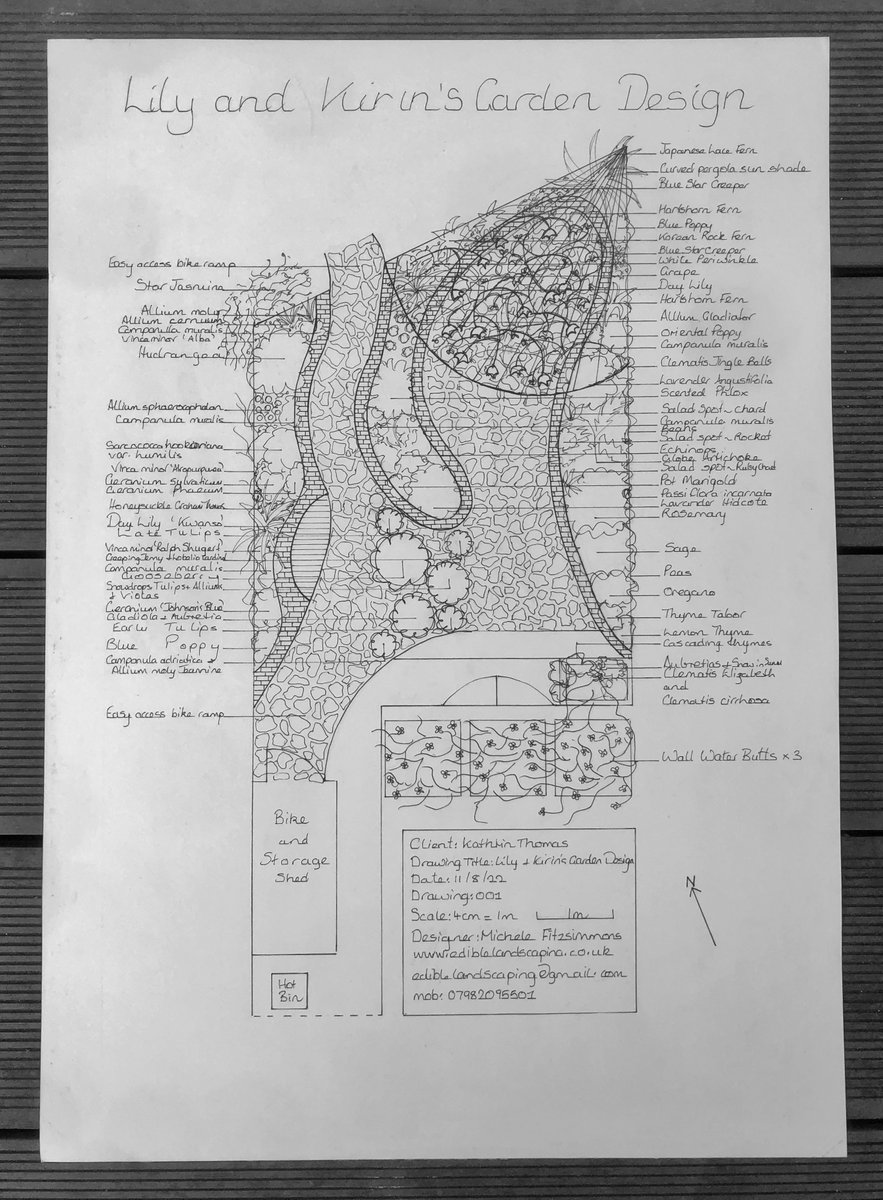 Lily and Kirin's Garden Design
Easy access bike ramp
Star Jasmine
Allium moly
Allium cernuum
Campanula muralis
Vinca minor 'Alba'
Hudrangea
Allium sphaerocephalon
Campanula muralis
Sarcococca hookeriana
var. humilis
Vinca minor 'Atropurpurea'
Geranium sylvaticum
Geranium phaeum
Honeysuckle Graham Thomas
Day Lily 'Kwanso'
Late Tulips
Vinca minor 'Ralph Shugert'
Creeping Jenny +
Campanula muralis
Gooseberry
Snowdrops Tulips + Alliums
+ Violas
Geranium 'Johnson's Blue'
Gladiola + Aubretia
Early Tulips
Blue Poppy
Campanula adriatica +
Allium moly Jeannine
Easy access bike ramp
Japanese Lace Fern
Curved pergola sun shade
Blue Star Creeper
Hartshorn Fern
Blue Poppy
Korean Rock Fern
Blue Star Creeper
White Periwinkle
Grape
Day Lily
Hartshorn Fern
Allium Gladiator
Oriental Poppy
Campanula muralis
Clematis Jingle Bells
Lavender Angustifolia
Scented Phlox
Salad Spot - Chard
Campanule muralis
Beans
Salad spot - Rocket
Echinops
Globe Artichoke
Salad spot - Ruby Chard
Pot Marigold
Passi Clora incarnata
Lavander Hidcote
Rosemary
Sage
Peas
Oregano
Thyme Tabor
Lemon Thyme
Cascading thymes
Aubretias + Snow in Summer
Clematis Elizabeth
and
Clematis cirrhosa
Wall Water Butts x 3
Bike
and
Storage
Shed
Hot
Bin
Client: Kathkin Thomas
Drawing Title: Lily + Kirin's Garden Design
Date: 11/8/22
Drawing: 001
Scale: 4cm = 1m 1m
Designer: Michele Fitzsimmons
www.ediblelandscaping.co.uk
ediblelandscaping@gmail.com
mob: 07982095501
N